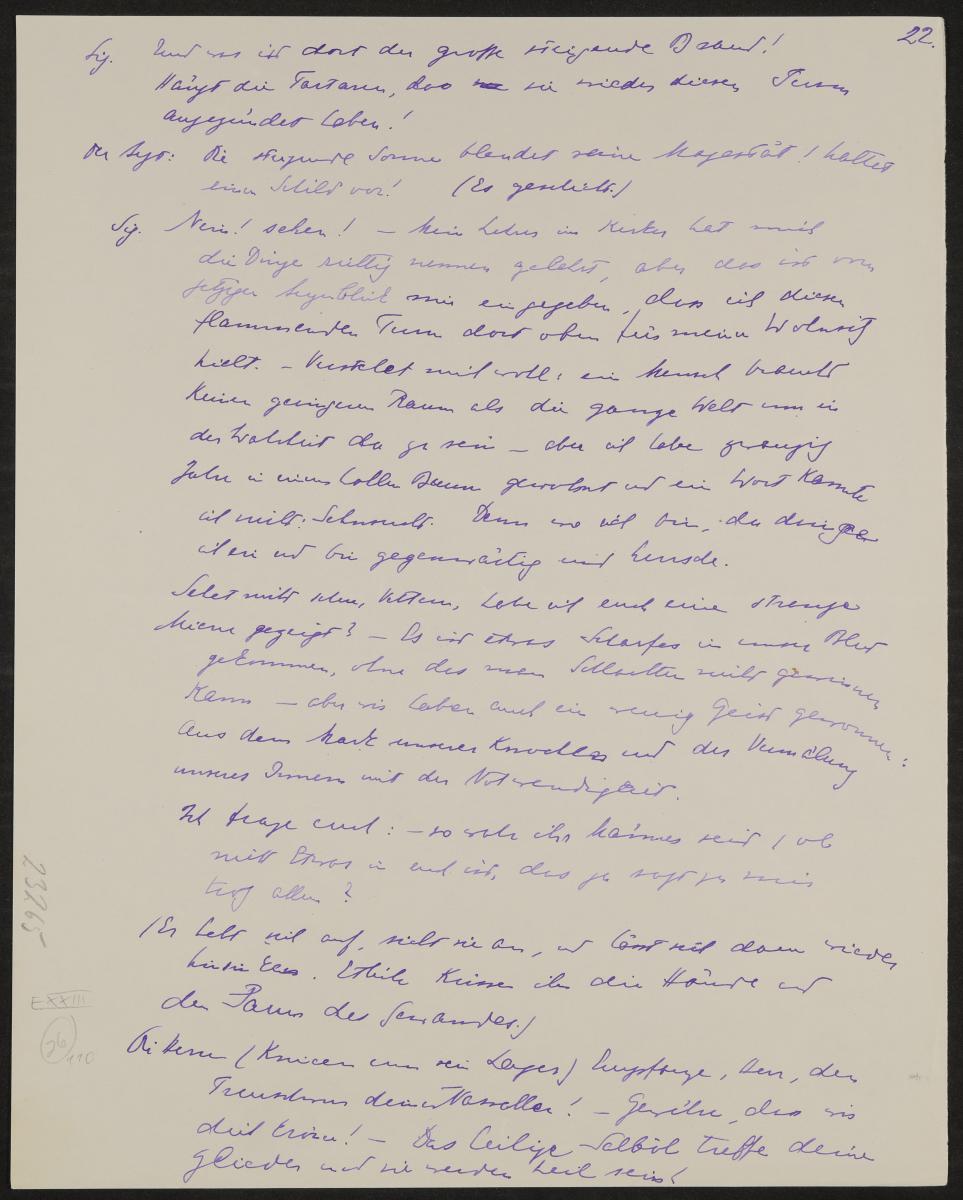 22.
Sig. Und was ist dort der grosse steigende Brand!
Hängt die Tartaren, dass sie wieder diesen Turm
angezündet haben!
Der Arzt: Die steigende Sonne blendet seine Majestät! haltet
einen Schild vor! (Es geschieht.)
Sig. Nein! sehen! – Mein Lehrer im Kerker hat mich
die Dinge richtig nennen gelehrt, aber das ist vom
jetzigen Augenblick mir eingegeben, dass ich diesen
flammenden Turm dort oben für meinen Wohnsitz
hielt. – Versteht mich wohl: ein Mensch braucht
keinen geringeren Raum als die ganze Welt um in
der Wahrheit da zu sein – aber ich habe zwanzig
Jahre in einem hohlen Baum gewohnt und ein Wort kannte
ich nicht: Sehnsucht. Denn wo ich bin, da dringe
ich ein und bin gegenwärtig und herrsche.
Seht mich schon, Vettern, habe ich euch eine strenge
Miene gezeigt? – Es ist etwas Scharfes in unser Blut
gekommen, ohne das man Schlachten nicht gewinnen
kann – aber wir haben auch ein wenig Geist gewonnen:
aus dem Mark unserer Knochen und der Vermählung
unseres Innern mit der Notwendigkeit.
Ich frage euch: – so wahr ihr Männer seid, ob
nicht Etwas in euch ist, das ja sagt zu mir
trotz allem?
(Er hebt sich auf, sieht sie an, und lässt sich dann wieder
hinsinken. Etliche küssen ihm die Hände und
den Saum des Gewandes.)
Die Herrn (knieen um sein Lager) Empfange, Herr, den
Treuschwur deiner Vasallen! – Gewähre, dass wir
dich krönen! – Das heilige Salböl treffe deine
Glieder und sie werden heil sein!
23265
EXXIII
110